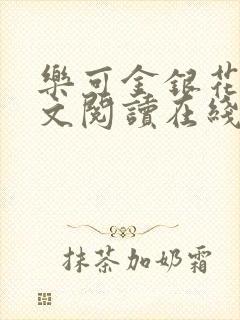 樂可金銀花
文閱讀在綫
抹茶加奶霜